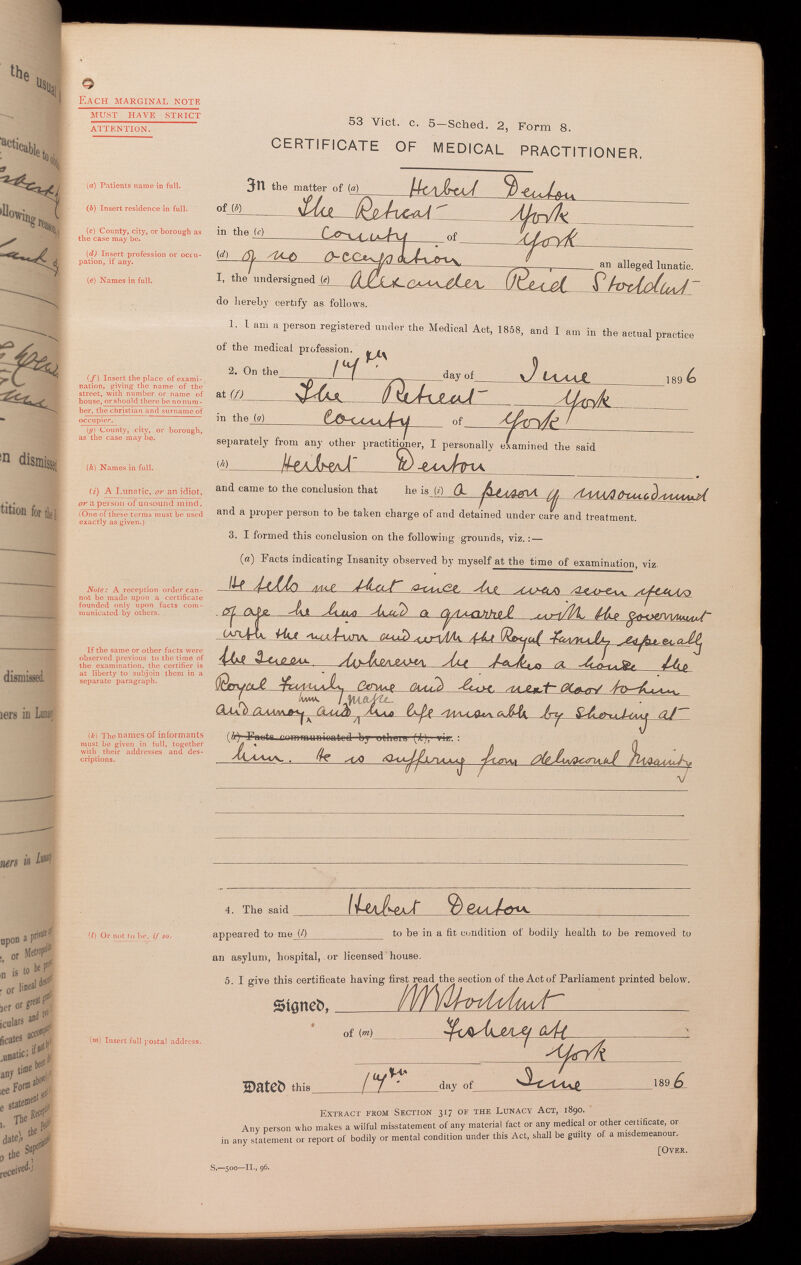 the usual
acticable to
ollowing
n dismissed
tition for the
dismissed.
ners in Lunacy
ners in Lunacy
upon a private
, or Metropolitan
n is to be
r or lineal
her or great
iculars and
ficates
unatic; if not
any time been
ee Form above
e statement
n. The Reception
date), the
o the Superintendent
received.]
EACH MARGINAL NOTE
MUST HAVE STRICT
ATTENTION.
53 Vict. c. 5—Sched. 2, Form 8.
CERTIFICATE OF MEDICAL PRACTITIONER.
(a) Patients name in full.
In the matter of (a) Herbert Denton
(b) Insert residence in full.
of (b) The Retreat York
(c) County, city, or borough as
the case may be.
in the (c) County of York
(d) Insert profession or occu-
pation, if any.
(d) of no occupation an alleged lunatic.
(e) Names in full.
I, the undersigned (e) Alexander Reid Stoddart
do hereby certify as follows.
1. I am a person registered under the Medical Act, 1858, and I am in the actual practice
of the medical profession.
2. On the 14th day of June 1896
(f) Insert the place of exami-
nation, giving the name of the
street, with number or name of
house, or should there be no num-
ber, the christian and surname of
occupier.
at (f) The Retreat York
(g) County, city, or borough,
as the case may be.
in the (g) County of York
separately from any other practitioner, I personally examined the said
(h) Names in full.
(h) Herbert Denton
(i) A Lunatic, or an idiot,
or a person of unsound mind.
(One of these terms must be used
exactly as given.)
and came to the conclusion that he is (i) a person of unsound mind
and a proper person to be taken charge of and detained under care and treatment.
3. I formed this conclusion on the following grounds, viz.:—
(a) Facts indicating Insanity observed by myself at the time of examination, viz.
Note: A reception order can-
not be made upon a certificate
founded only upon facts com-
municated by others.
He tells me that since he was seven years
of age he has had a quarrel with the government
with the nation and with the Royal Family especially
If the same or other facts were
observed previous to the time of
the examination, the certifier is
at liberty to subjoin them in a
separate paragraph.
the Queen. Wherever he takes a house the
Royal Family come and live next door to him
and annoy him and make his life miserable by shouting at
(k) The names of informants
must be given in full, together
with their addresses and des-
criptions.
(b) Facts communicated by others (k), viz.:
him. He is suffering from delusional Insanity
4. The said Herbert Denton
(l) Or not to be, if so.
appeared to me (l) to be in a fit condition of bodily health to be removed to
an asylum, hospital, or licensed house.
5. I give this certificate having first read the section of the Act of Parliament printed below.
Signed, Stoddart
(m) Insert full postal address.
of (m) Fishergate
York
Dated this 14th day of June 1896
EXTRACT FROM SECTION 317 OF THE LUNACY ACT, 1890.
Any person who makes a wilful misstatement of any material fact or any medical or other certificate, or
in any statement or report of bodily or mental condition under this Act, shall be guilty of a misdemeanour.
[OVER.
S.—500—II., 96.